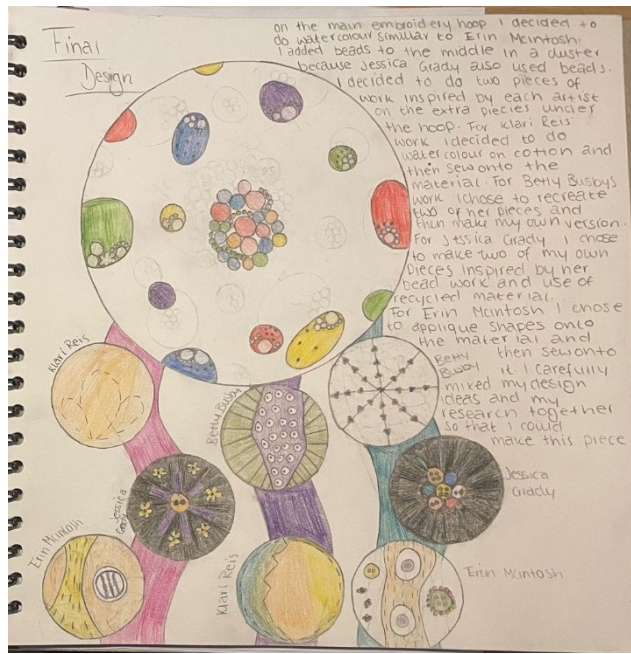 Final
Design
on the main embroidery hoop I decided to
do watercolour similiar to Erin Mcintosh.
I added beads to the middle in a cluster
because Jessica Grady also used beads.
I decided to do two pieces of
work inspired by each artist
on the extra piecies under
the hoop. For Klari Reis'
work i decided to do
watercolour on cotton and
then sew onto the
material. For Betty Busbys
work I chose to recreate
two of her pieces and
then make my own version.
For Jessica Grady I chose
to make two of my own
pieces inspired by her
bead work and use of
recycled material.
For Erin Mcintosh I chose
to applique shapes onto
the material and
then sew onto
it. I carefully
mixed my design
ideas and my
research together
so that I could
make this piece
Klari Reis
Betty Busby
Betty
Busby
Jessica
Grady
Jessica
Grady
Erin Mcintosh
Klari Reis
Erin Mcintosh